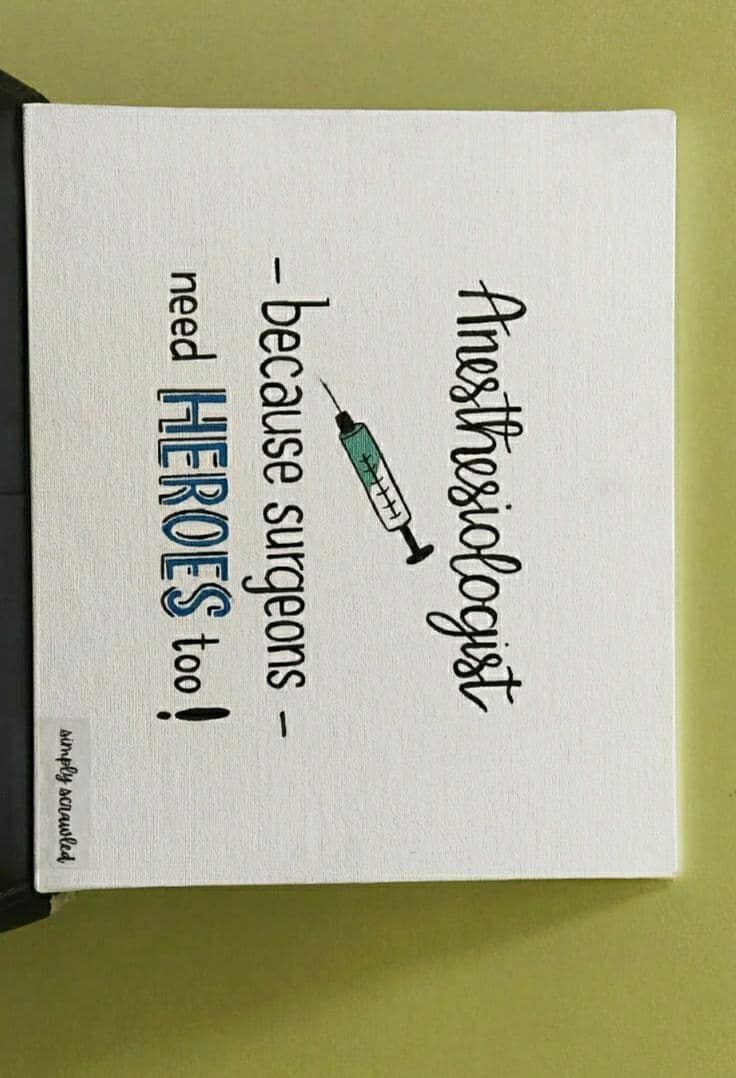 Anesthesiologist
- because surgeons -
need HEROES too!
simply scrawled